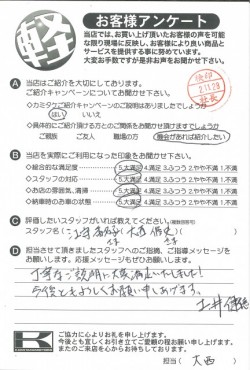 軽
お客様アンケート
当店では、お買い上げ頂いたお客様の声を可能
な限り現場に反映し、お客様により良い商品と
サービスを提供する事に努めています。
大変お手数ですが是非お声をお聞かせ下さい。
検印
2.11.29
店長
A 当店はご紹介を大切にしております。
ご紹介キャンペーンについてお聞かせ下さい。
はい いいえ
ご親族 ご友人 職場の方 機会があれば紹介したい
B 当店を実際にご利用になった印象をお聞かせ下さい。
総合的な満足度 5.大満足 4.満足 3.ふつう 2.やや不満 1.不満
スタッフの対応 5.大満足 4.満足 3.ふつう 2.やや不満 1.不満
お店の雰囲気、清掃 5.大満足 4.満足 3.ふつう 2.やや不満 1.不満
納車時のお車の状態 5.大満足 4.満足 3.ふつう 2.やや不満 1.不満
C 評価したいスタッフがいれば教えてください。(複数回答可)
スタッフ名(
D 担当させて頂きましたスタッフへのご指摘、ご指導メッセージを
お願いします。応援メッセージもぜひお聞かせください!
丁寧なご説明に大変満足いたしました!
今後ともよろしくお願い申し上げます。
K
ご協力に心よりお礼を申し上げます。
今後とも宜しくお引き立てご愛顧の程お願い申し上げます。
またのご来店を心からお待ちしております。
担当( 大西 )